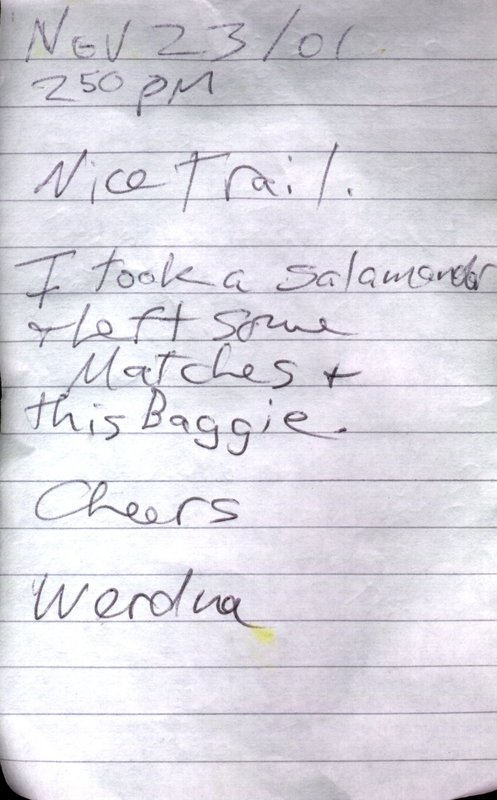 Nov 23/01
250 PM
Nice Trail.
I took a salamander
+ left some
Matches +
this Baggie.
Cheers
Werdna